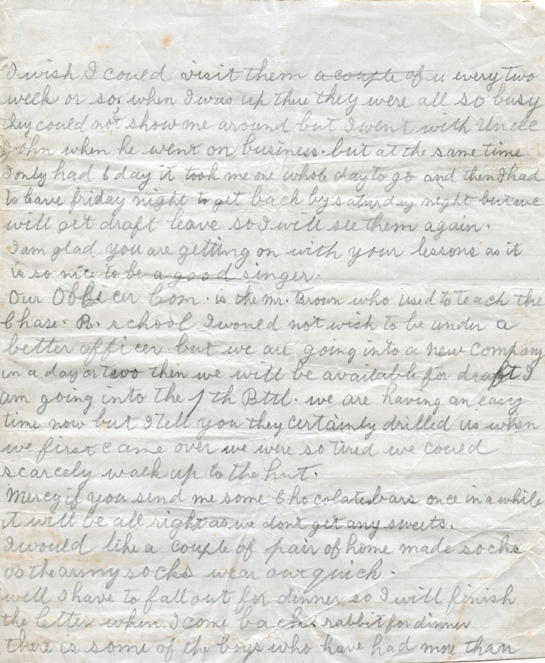 I wish I could visit them a couple of u every two
week or so, when I was up there they were all so busy
they could not show me around but I went with Uncle
John when he went on business. but at the same time
I only had 6 day it took me one whole day to go and then I had
to leave friday night to get back by saturday night but we
will get draft leave so I will see them again.
I am glad you are getting on with your lessons as it
is so nice to be a good singer.
Our Officer Com. is the Mr. Brown who used to teach the
Chase. R. school I would not wish to be under a
better officer but we are going into a new company
in a day or two then we will be available for draft I
am going into the 7th Bttl. we are having an easy
time now but I tell you they certainly drilled us when
we first came over we were so tired we could
scarcely walk up to the hut.
Mercy if you send me some Chocolate bars once in a while
it will be all right as we dont get any sweets.
I would like a couple of pair of home made socks
as the army socks wear our quick.
well I have to fall out for dinner so I will finish
the letter when I come back. rabbit for dinner
there is some of the boys who have had more than